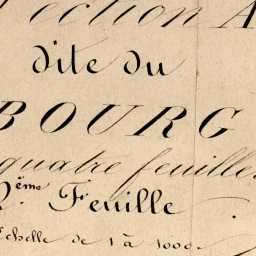 Section A
dite du
BOURG
quatre feuilles
2.ème Feuille
Echelle de 1 à 1000.